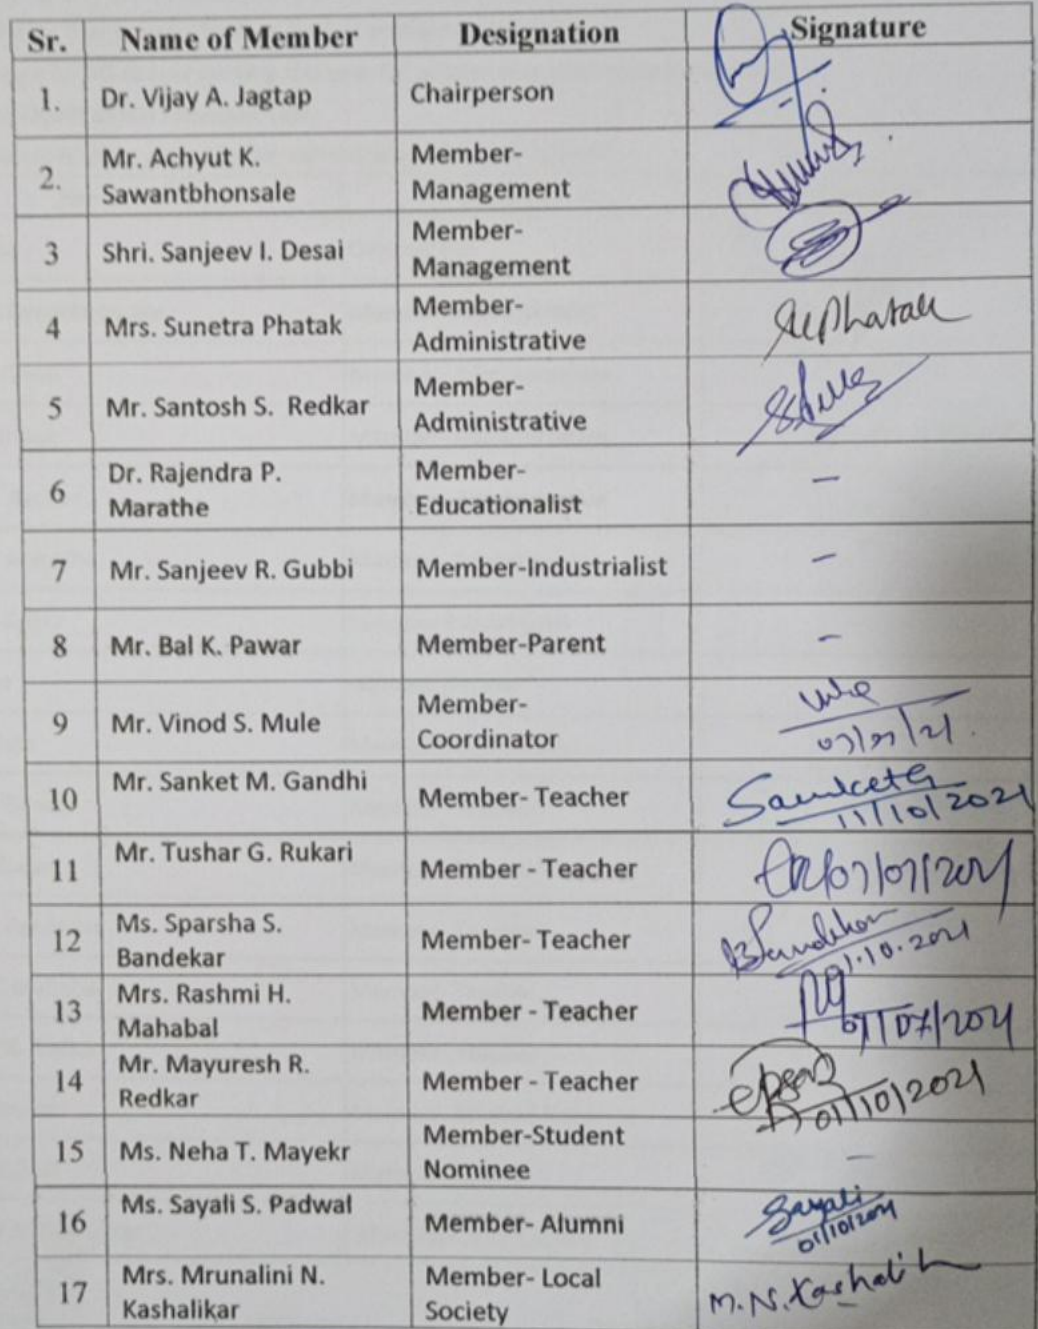 Sr. Name of Member Designation Signature
1. Dr. Vijay A. Jagtap Chairperson
2. Mr. Achyut K. Member-
Sawantbhonsale Management
3 Shri. Sanjeev I. Desai Member-
Management
4 Mrs. Sunetra Phatak Member-
Administrative
5 Mr. Santosh S. Redkar Member-
Administrative
6 Dr. Rajendra P. Member- -
Marathe Educationalist
7 Mr. Sanjeev R. Gubbi Member-Industrialist -
8 Mr. Bal K. Pawar Member-Parent -
9 Mr. Vinod S. Mule Member-
Coordinator
10 Mr. Sanket M. Gandhi Member- Teacher
11/10/2021
11 Mr. Tushar G. Rukari Member - Teacher
12 Ms. Sparsha S. Member- Teacher
Bandekar
13 Mrs. Rashmi H. Member - Teacher
Mahabal
14 Mr. Mayuresh R. Member - Teacher
Redkar 01/10/2021
15 Ms. Neha T. Mayekr Member-Student -
Nominee
16 Ms. Sayali S. Padwal Member- Alumni Sayali
01/10/2021
17 Mrs. Mrunalini N. Member- Local M.N.
Kashalikar Society